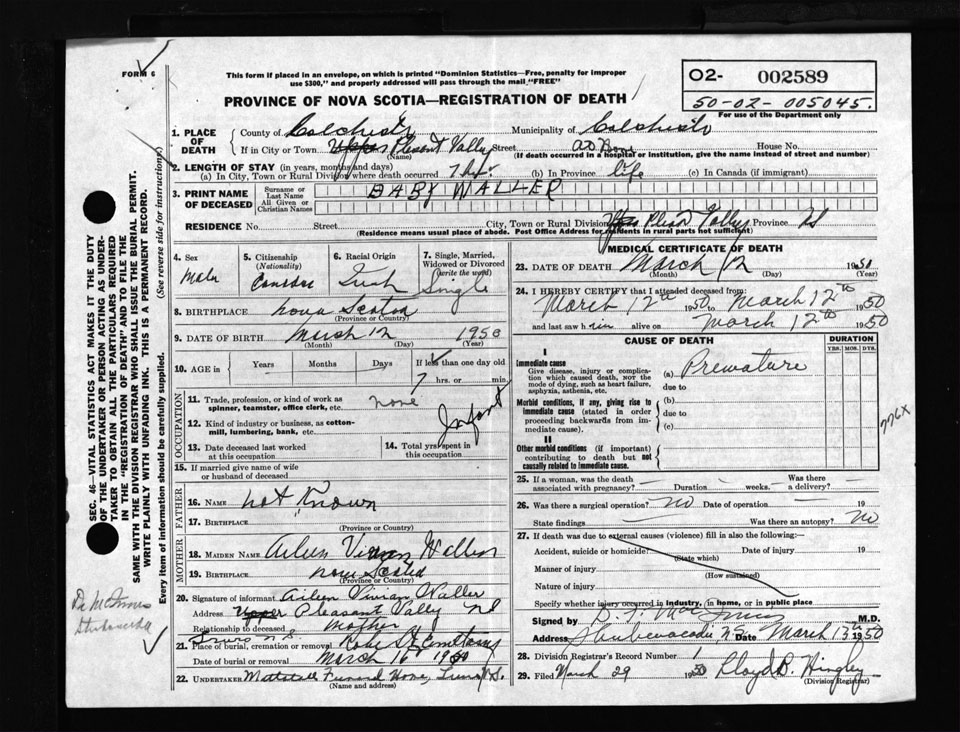 FORM 6
This form if placed in an envelope, on which is printed "Dominion Statistics—Free, penalty for improper
use $300," and properly addressed will pass through the mail "FREE"
PROVINCE OF NOVA SCOTIA—REGISTRATION OF DEATH
O2- 002589
50-02-005045.
For use of the Department only
1. PLACE OF DEATH County of Colchester Municipality of Colchester
If in City or Town Upper Pleasant Valley Street House No.
(Name) (If death occurred in a hospital or institution, give the name instead of street and number)
2. LENGTH OF STAY (in years, months and days)
(a) In City, Town or Rural Division where death occurred 7 hr. (b) In Province life (c) In Canada (if immigrant)
3. PRINT NAME OF DECEASED Surname or Last Name BABY WALLER
All Given or Christian Names
RESIDENCE No. Street City, Town or Rural Division Valley Province NS
(Residence means usual place of abode. Post Office Address for residents in rural parts not sufficient)
4. Sex Male
5. Citizenship (Nationality)
6. Racial Origin
7. Single, Married, Widowed or Divorced (write the word) Single
8. BIRTHPLACE Nova Scotia
(Province or Country)
9. DATE OF BIRTH March 12 1950
(Month) (Day) (Year)
10. AGE in Years Months Days If less than one day old
7 hrs. or min.
OCCUPATION
11. Trade, profession, or kind of work as spinner, teamster, office clerk, etc. none
12. Kind of industry or business, as cotton-mill, lumbering, bank, etc. Infant
13. Date deceased last worked at this occupation
14. Total yrs spent in this occupation
15. If married give name of wife or husband of deceased
FATHER
16. NAME not known
17. BIRTHPLACE
(Province or Country)
MOTHER
18. MAIDEN NAME Aileen Vivian Waller
19. BIRTHPLACE Nova Scotia
(Province or Country)
20. Signature of informant Aileen Vivian Waller
Address Upper Pleasant Valley NS
Relationship to deceased mother
Truro N.S.
21. Place of burial, cremation or removal Robie St Cemetery
Date of burial or removal March 16 1950
22. UNDERTAKER Mattatall Funeral Home, Truro N.S.
(Name and address)
MEDICAL CERTIFICATE OF DEATH
23. DATE OF DEATH March 12 1950
(Month) (Day) (Year)
24. I HEREBY CERTIFY that I attended deceased from:
March 12th 1950 to March 12th 1950
and last saw him alive on March 12th 1950
CAUSE OF DEATH
DURATION
YRS. MOS. DYS.
I
Immediate cause
Give disease, injury or complication which caused death, NOT the mode of dying, such as heart failure, asphyxia, asthenia, etc.
(a) Premature
due to
Morbid conditions, if any, giving rise to immediate cause (stated in order proceeding backwards from immediate cause).
(b)
due to
(c)
II
Other morbid conditions (if important) contributing to death but not causally related to immediate cause.
776X
25. If a woman, was the death associated with pregnancy? — Duration — weeks. Was there a delivery? —
26. Was there a surgical operation? no Date of operation 19
State findings Was there an autopsy? no
27. If death was due to external causes (violence) fill in also the following:
Accident, suicide or homicide? Date of injury 19
(State which)
Manner of injury
(How sustained)
Nature of injury
Specify whether injury occurred in industry, in home, or in public place
Signed by D. F. McInnis M.D.
Address Shubenacadie N.S. Date March 13th 1950
28. Division Registrar's Record Number 1
29. Filed March 29 1950 Lloyd B. Hingley
(Division Registrar)
SEC. 46—VITAL STATISTICS ACT MAKES IT THE DUTY
OF THE UNDERTAKER OR PERSON ACTING AS UNDER-
TAKER TO OBTAIN ALL THE PARTICULARS REQUIRED
IN THE "REGISTRATION OF DEATH" AND TO FILE THE
SAME WITH THE DIVISION REGISTRAR WHO SHALL ISSUE THE BURIAL PERMIT.
WRITE PLAINLY WITH UNFADING INK. THIS IS A PERMANENT RECORD.
Every item of information should be carefully supplied. (See reverse side for instructions.)
Dr McInnis
Shubenacadie